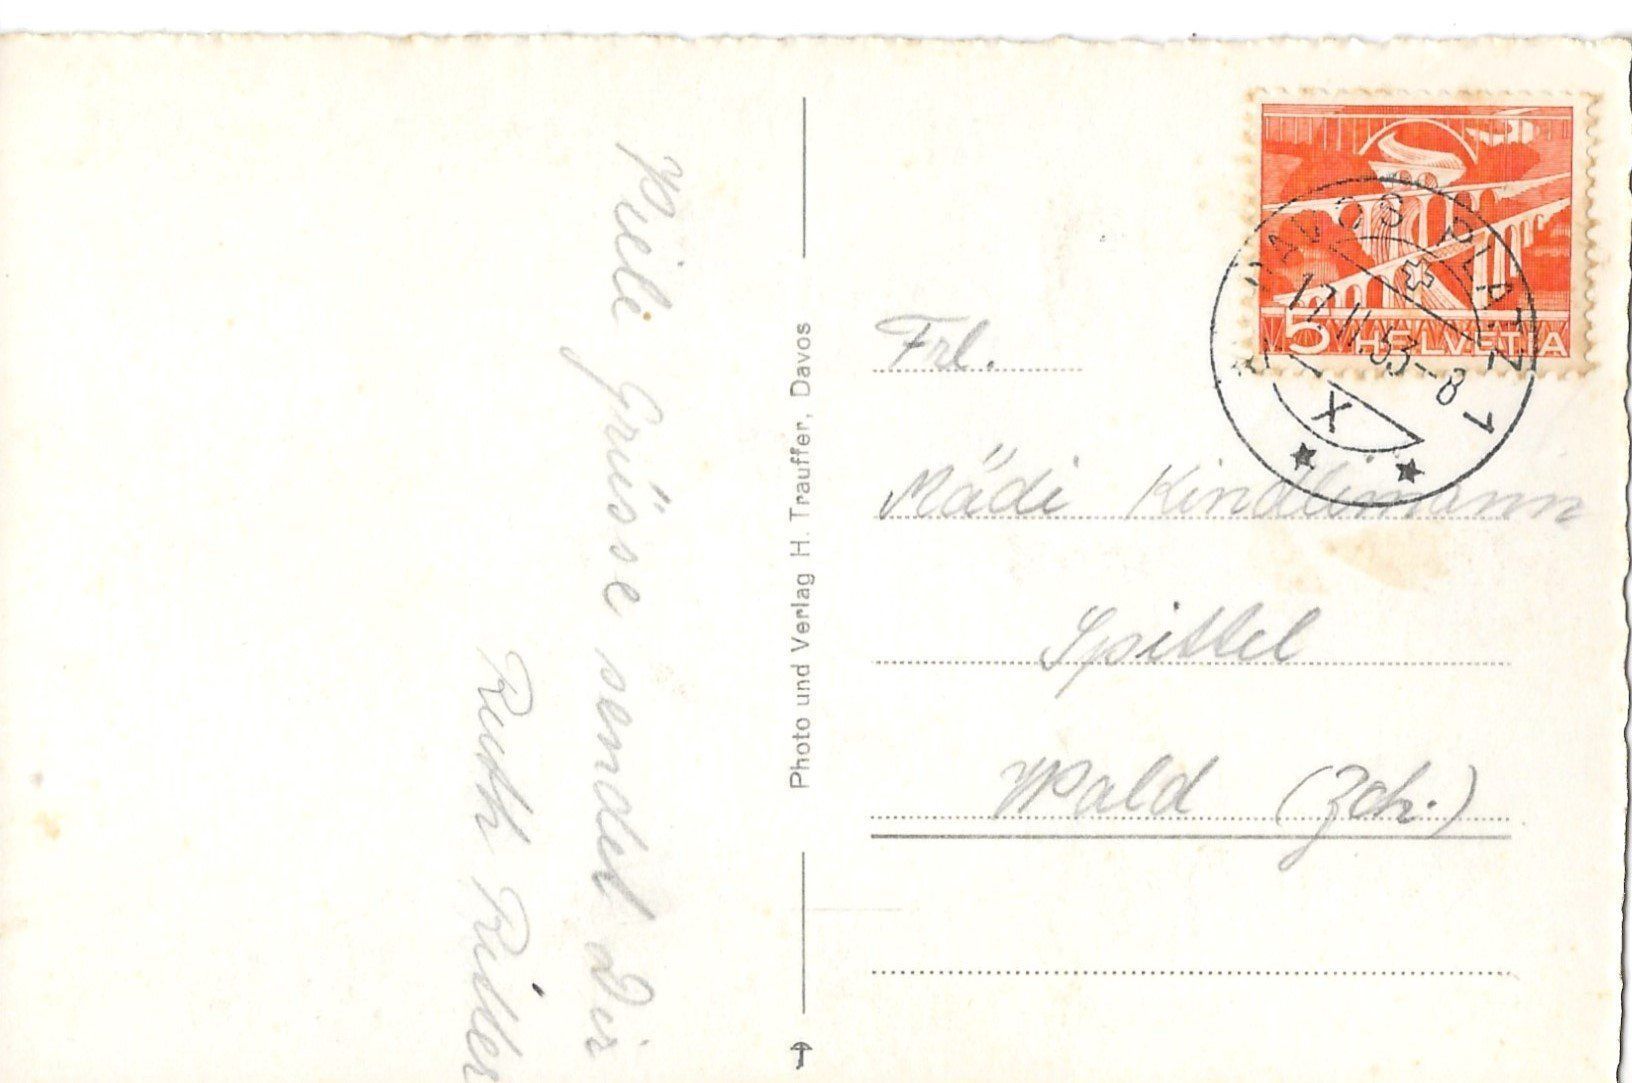 Viele Grüsse sendet Dir
Ruth
Photo und Verlag H. Trauffer, Davos
5 HELVETIA
DAVOS PLATZ 1
17.II.53-8
X
Frl.
Mädi Kindlimann
Spittel
Wald (Zch.)